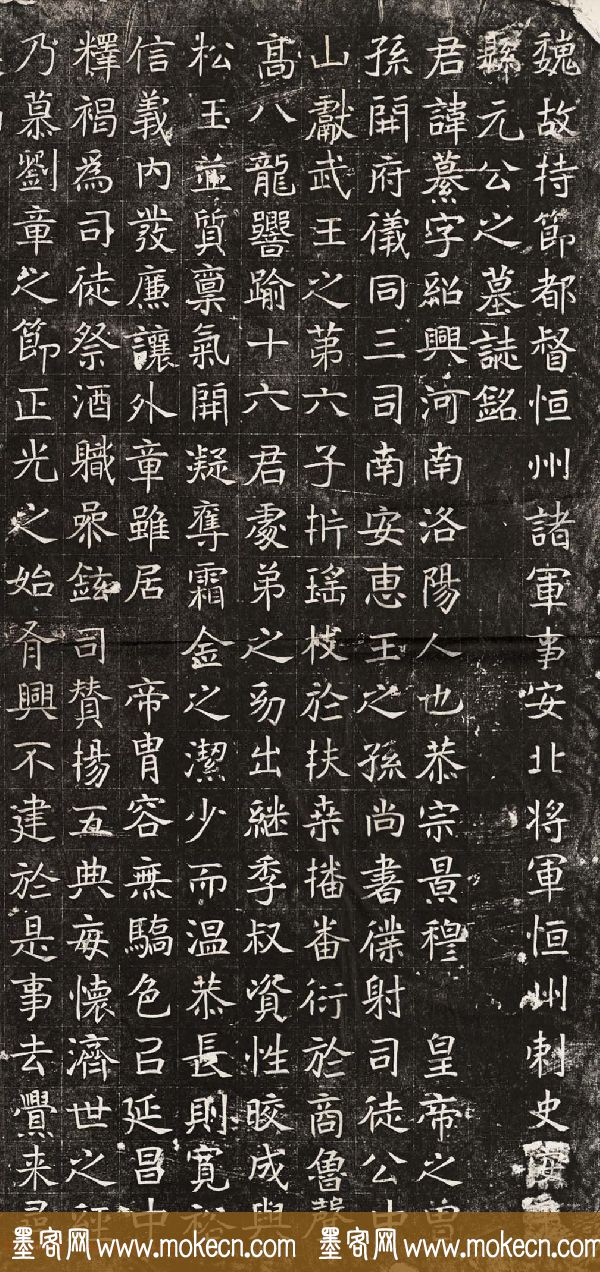 魏故持節都督恒州諸軍事安北將軍恒州刺史
縣元公之墓誌銘
君諱纂字紹興河南洛陽人也恭宗景穆皇帝之曾
孫開府儀同三司南安惠王之孫尚書僕射司徒公中
山獻武王之第六子折瑤枝於扶桒播番衍於商魯聲
高八龍響踰十六君處弟之幼出継季叔資性皎成與
松玉並質稟氣開凝奪霜金之潔少而温恭長則寬裕
信義内發廉讓外章雖居帝胄容無驕色㠯延昌中
釋褐為司徒祭酒職㕘鉉司贊揚五典每懷濟世之
乃慕劉章之節正光之始胥興不建於是事去舋来
墨客网www.mokecn.com 墨客网www.mokecn.com